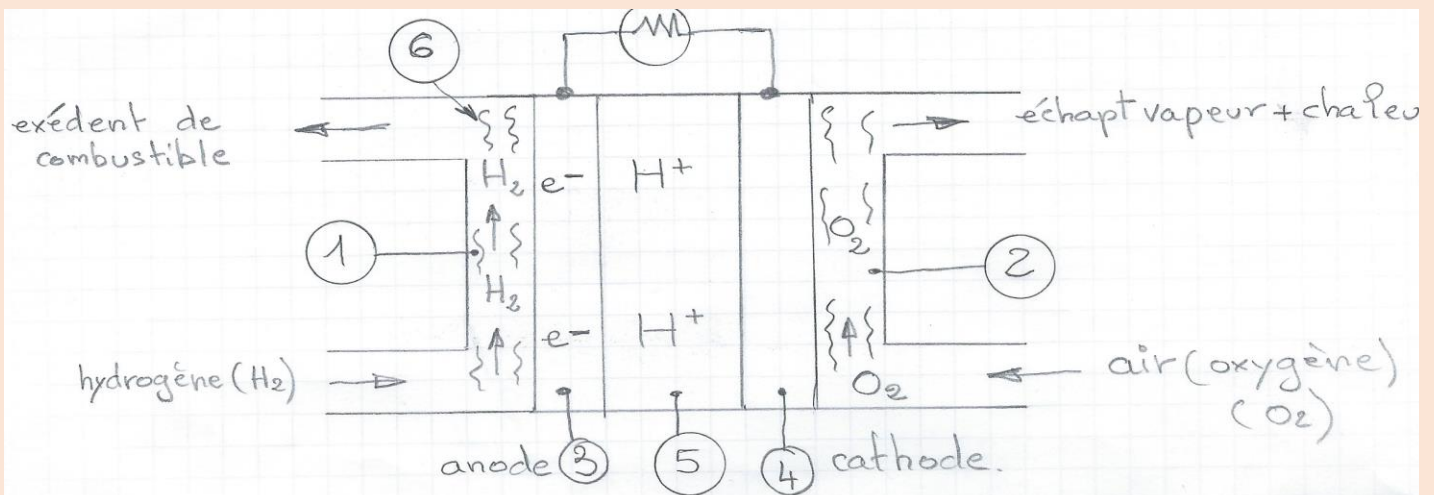 6
exédent de
combustible
échapt vapeur + chaleu
H₂
e-
H+
O₂
1
2
H₂
e-
H+
hydrogène (H₂)
O₂
air (oxygène)
(O₂)
anode 3
5
4 cathode.